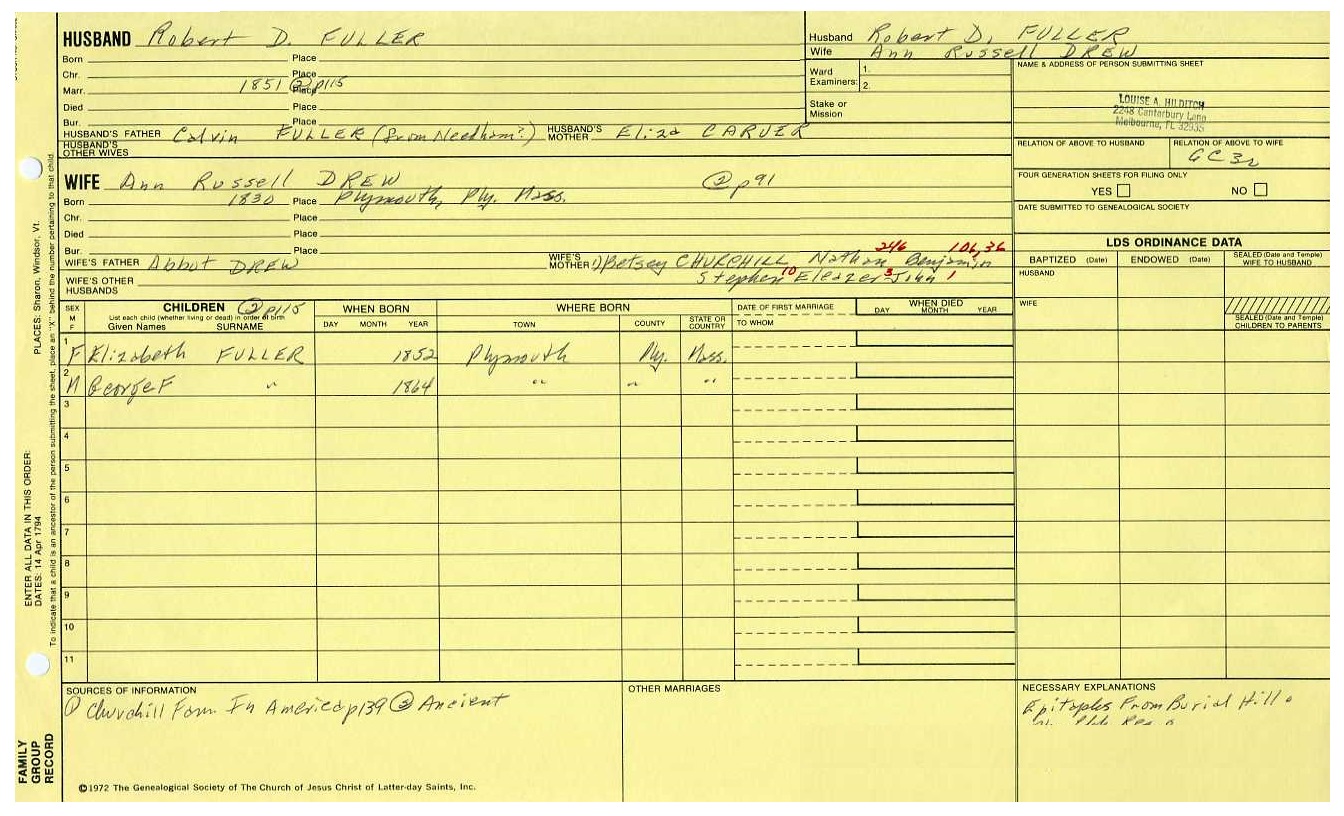 HUSBAND Robert D. FULLER
Born Place
Chr. Place
Marr. 1851 Place ② p115
Died Place
Bur. Place
HUSBAND'S FATHER Calvin FULLER (from Needham?) HUSBAND'S MOTHER Eliza CARVER
HUSBAND'S OTHER WIVES
Husband Robert D. FULLER
Wife Ann Russell DREW
Ward Examiners: 1.
2.
Stake or Mission
NAME & ADDRESS OF PERSON SUBMITTING SHEET
LOUISE A. HILDITCH
2248 Canterbury Lane
Melbourne, FL 32935
RELATION OF ABOVE TO HUSBAND RELATION OF ABOVE TO WIFE
GC3r
FOUR GENERATION SHEETS FOR FILING ONLY
YES NO
DATE SUBMITTED TO GENEALOGICAL SOCIETY
WIFE Ann Russell DREW ② p91
Born 1830 Place Plymouth, Ply. Mass.
Chr. Place
Died Place
Bur. Place
WIFE'S FATHER Abbot DREW WIFE'S MOTHER ① Betsey CHURCHILL Nathan 246 Benjamin 106, 36
Stephen 10 Eleazer 3 John 1
WIFE'S OTHER HUSBANDS
LDS ORDINANCE DATA
BAPTIZED (Date) ENDOWED (Date) SEALED (Date and Temple) WIFE TO HUSBAND
HUSBAND
WIFE
SEALED (Date and Temple) CHILDREN TO PARENTS
SEX M F CHILDREN ② p115
List each child (whether living or dead) in order of birth
Given Names SURNAME
WHEN BORN
DAY MONTH YEAR
WHERE BORN
TOWN COUNTY STATE OR COUNTRY
DATE OF FIRST MARRIAGE
TO WHOM
WHEN DIED
DAY MONTH YEAR
1 F Elizabeth FULLER 1852 Plymouth Ply. Mass.
2 M George F " 1864 " " "
3
4
5
6
7
8
9
10
11
SOURCES OF INFORMATION
① Churchill Fam In America p139 ② Ancient
OTHER MARRIAGES
NECESSARY EXPLANATIONS
Epitaphs From Burial Hill
©1972 The Genealogical Society of The Church of Jesus Christ of Latter-day Saints, Inc.
FAMILY GROUP RECORD
ENTER ALL DATA IN THIS ORDER:
DATES: 14 Apr 1794
PLACES: Sharon, Windsor, Vt.
To indicate that a child is an ancestor of the person submitting the sheet, place an "X" behind the number pertaining to that child.